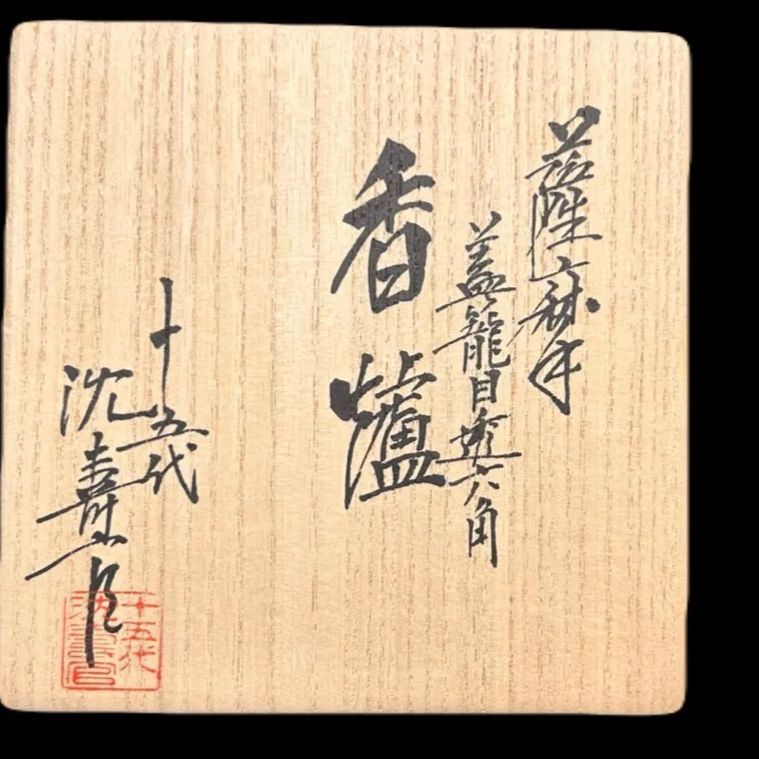 薩摩手
蓋籠目透六角
香爐
十五代
沈壽官
十五代
沈壽官